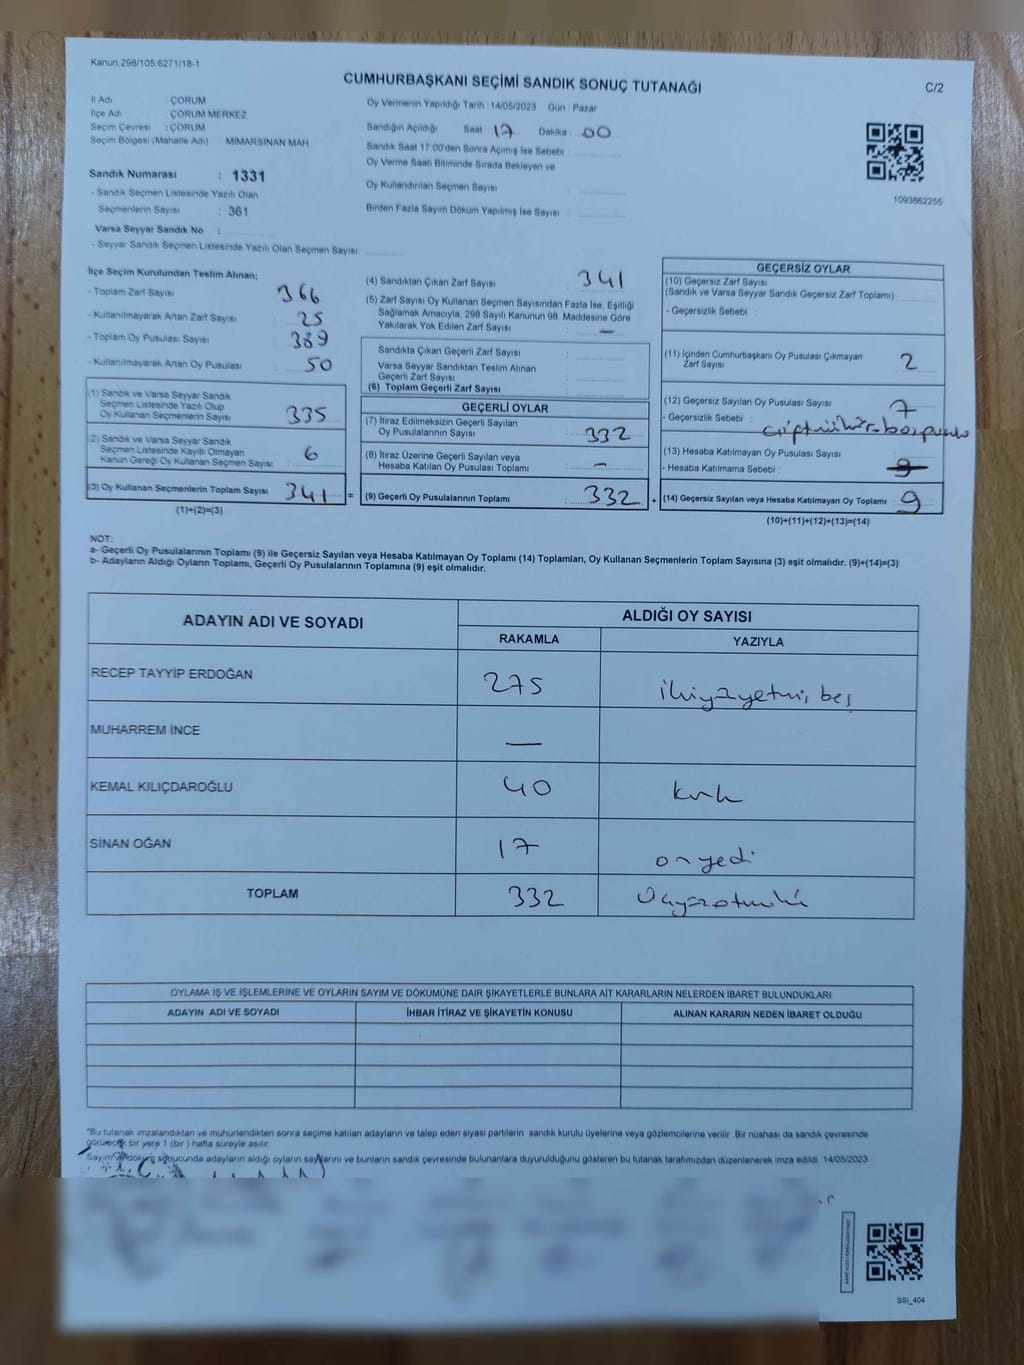 Kanun.298/105,6271/18-1
CUMHURBAŞKANI SEÇİMİ SANDIK SONUÇ TUTANAĞI
C/2
İl Adı ÇORUM
İlçe Adı ÇORUM MERKEZ
Seçim Çevresi : ÇORUM
Seçim Bölgesi (Mahalle Adı) : MİMARSİNAN MAH
Oy Vermenin Yapıldığı Tarih : 14/05/2023 Gün : Pazar
Sandığın Açıldığı Saat 17 Dakika : 00
Sandık Saat 17:00'den Sonra Açımış İse Sebebi :
Oy Verme Saati Bitiminde Sırada Bekleyen ve
Oy Kullandırılan Seçmen Sayısı
Birden Fazla Sayım Döküm Yapılmış İse Sayısı :
1093862255
Sandık Numarası : 1331
- Sandık Seçmen Listesinde Yazılı Olan
Seçmenlerin Sayısı : 361
Varsa Seyyar Sandık No :
- Seyyar Sandık Seçmen Listesinde Yazılı Olan Seçmen Sayısı:
İlçe Seçim Kurulundan Teslim Alınan;
- Toplam Zarf Sayısı 366
- Kullanılmayarak Artan Zarf Sayısı : 25
- Toplam Oy Pusulası Sayısı : 389
- Kullanılmayarak Artan Oy Pusulası : 50
(1) Sandık ve Varsa Seyyar Sandık
Seçmen Listesinde Yazılı Olup
Oy Kullanan Seçmenlerin Sayısı 335
(2) Sandık ve Varsa Seyyar Sandık
Seçmen Listesinde Kayıtlı Olmayan
Kanun Gereği Oy Kullanan Seçmen Sayısı : 6
(3) Oy Kullanan Seçmenlerin Toplam Sayısı 341 =
(1)+(2)=(3)
(4) Sandıktan Çıkan Zarf Sayısı : 341
(5) Zarf Sayısı Oy Kullanan Seçmen Sayısından Fazla İse, Eşitliği
Sağlamak Amacıyla, 298 Sayılı Kanunun 98. Maddesine Göre
Yakılarak Yok Edilen Zarf Sayısı : —
Sandıkta Çıkan Geçerli Zarf Sayısı :
Varsa Seyyar Sandıktan Teslim Alınan
Geçerli Zarf Sayısı :
(6) Toplam Geçerli Zarf Sayısı :
GEÇERLİ OYLAR
(7) İtiraz Edilmeksizin Geçerli Sayılan
Oy Pusulalarının Sayısı : 332
(8) İtiraz Üzerine Geçerli Sayılan veya
Hesaba Katılan Oy Pusulası Toplamı : —
(9) Geçerli Oy Pusulalarının Toplamı : 332 +
GEÇERSİZ OYLAR
(10) Geçersiz Zarf Sayısı
(Sandık ve Varsa Seyyar Sandık Geçersiz Zarf Toplamı) :
- Geçersizlik Sebebi :
(11) İçinden Cumhurbaşkanı Oy Pusulası Çıkmayan
Zarf Sayısı : 2
(12) Geçersiz Sayılan Oy Pusulası Sayısı 7
- Geçersizlik Sebebi :
(13) Hesaba Katılmayan Oy Pusulası Sayısı
- Hesaba Katılmama Sebebi : 9
(14) Geçersiz Sayılan veya Hesaba Katılmayan Oy Toplamı : 9
(10)+(11)+(12)+(13)=(14)
NOT:
a- Geçerli Oy Pusulalarının Toplamı (9) ile Geçersiz Sayılan veya Hesaba Katılmayan Oy Toplamı (14) Toplamları, Oy Kullanan Seçmenlerin Toplam Sayısına (3) eşit olmalıdır. (9)+(14)=(3)
b- Adayların Aldığı Oyların Toplamı, Geçerli Oy Pusulalarının Toplamına (9) eşit olmalıdır.
ADAYIN ADI VE SOYADI ALDIĞI OY SAYISI
RAKAMLA YAZIYLA
RECEP TAYYİP ERDOĞAN 275 ikiyüzyetmiş beş
MUHARREM İNCE —
KEMAL KILIÇDAROĞLU 40 kırk
SİNAN OĞAN 17 onyedi
TOPLAM 332 Üçyüzotuziki
OYLAMA İŞ VE İŞLEMLERİNE VE OYLARIN SAYIM VE DÖKÜMÜNE DAİR ŞİKAYETLERLE BUNLARA AİT KARARLARIN NELERDEN İBARET BULUNDUKLARI
ADAYIN ADI VE SOYADI İHBAR İTİRAZ VE ŞİKAYETİN KONUSU ALINAN KARARIN NEDEN İBARET OLDUĞU
*Bu tutanak imzalandıktan ve mühürlendikten sonra seçime katılan adayların ve talep eden siyasi partilerin sandık kurulu üyelerine veya gözlemcilerine verilir. Bir nüshası da sandık çevresinde
görülecek bir yere 1 (bir ) hafta süreyle asılır.
Sayım ve döküm sonucunda adayların aldığı oyların sayılarını ve bunların sandık çevresinde bulunanlara duyurulduğunu gösteren bu tutanak tarafımızdan düzenlenerek imza edildi. 14/05/2023
SSI_404